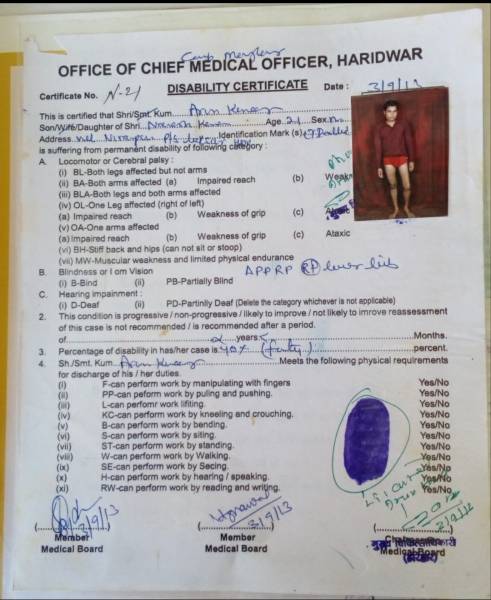 OFFICE OF CHIEF MEDICAL OFFICER, HARIDWAR
Certificate No. N-21 DISABILITY CERTIFICATE Date : 3/9/13
This is certified that Shri/Smt. Kum Arun Kumar
Son/Wife/Daughter of Shri Kumar Age 21 Sex M
Address Vill Identification Mark (s)
is suffering from permanent disability of following category :
A. Locomotor or Cerebral palsy :
(i) BL-Both legs affected but not arms
(ii) BA-Both arms affected (a) Impaired reach (b) Weakn
(iii) BLA-Both legs and both arms affected
(iv) OL-One Leg affected (right of left)
(a) Impaired reach (b) Weakness of grip (c)
(v) OA-One arms affected
(a) Impaired reach (b) Weakness of grip (c) Ataxic
(vi) BH-Stiff back and hips (can not sit or stoop)
(vii) MW-Muscular weakness and limited physical endurance
B. Blindness or I om Vision APPRP RP lower limb
(i) B-Bind (ii) PB-Partially Blind
C. Hearing impairment :
(i) D-Deaf (ii) PD-Partinlly Deaf (Delete the category whichever is not applicable)
2. This condition is progressive / non-progressive / likely to improve / not likely to imrove reassessment
of this case is not recommended / is recommended after a period.
of years Months.
3. Percentage of disability in has/her case is 40% (forty) percent.
4. Sh./Smt. Kum Arun Kumar Meets the following physical requirements
for discharge of his / her duties.
(i) F-can perform work by manipulating with fingers Yes/No
(ii) PP-can perform work by puling and pushing. Yes/No
(iii) L-can perfomr work lifiting. Yes/No
(iv) KC-can perform work by kneeling and crouching. Yes/No
(v) B-can perform work by bending. Yes/No
(vi) S-can perform work by siting. Yes/No
(vii) ST-can perform work by standing. Yes/No
(viii) W-can perform work by Walking. Yes/No
(ix) SE-can perform work by Secing. Yes/No
(x) H-can perform work by hearing / speaking. Yes/No
(xi) RW-can perform work by reading and writing. Yes/No
3/9/13 3/9/13
Member Member
Medical Board Medical Board Medical Board
मुख्य चिकित्साधिकारी
(हरिद्वार)